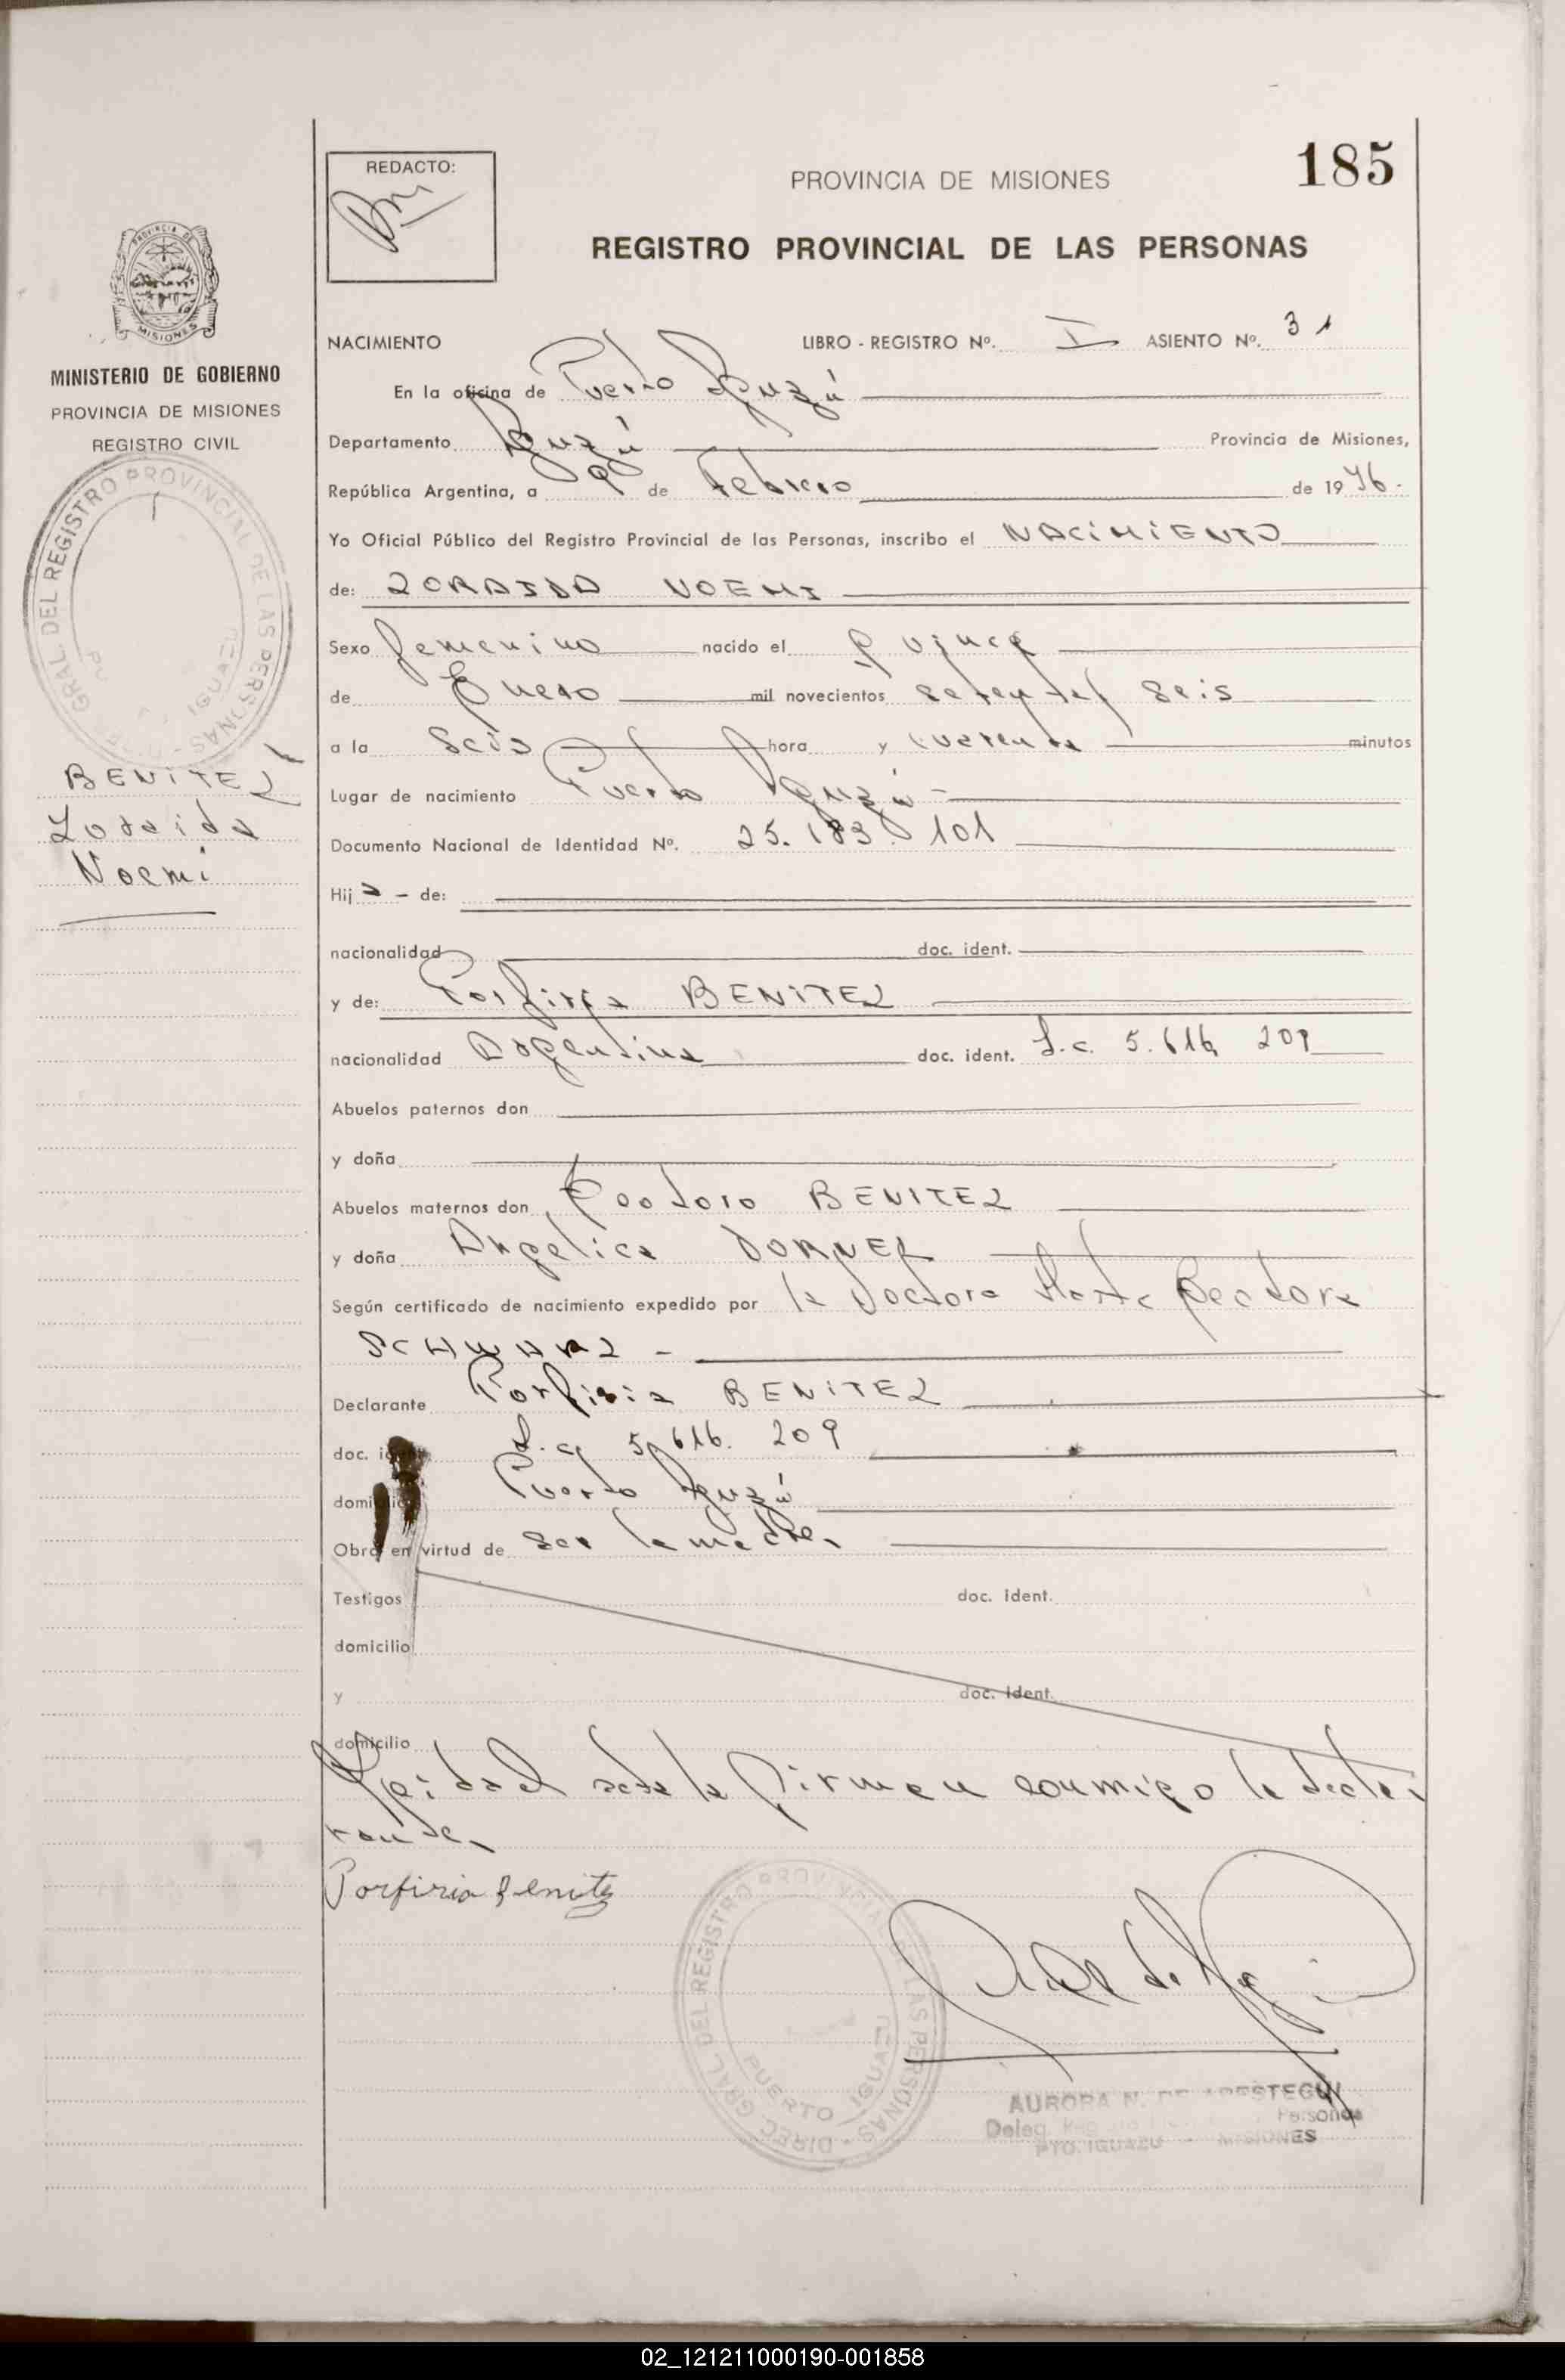 185
REDACTO:
PROVINCIA DE MISIONES
REGISTRO PROVINCIAL DE LAS PERSONAS
PROVINCIA DE
MISIONES
MINISTERIO DE GOBIERNO
PROVINCIA DE MISIONES
REGISTRO CIVIL
GRAL DEL REGISTRO PROVINCIAL DE LAS PERSONAS
BENITEZ
Zoraida
Noemi
NACIMIENTO LIBRO - REGISTRO Nº. I ASIENTO Nº. 31
En la oficina de Puerto Iguazú
Departamento Iguazú Provincia de Misiones,
República Argentina, a 9 de Febrero de 1976.
Yo Oficial Público del Registro Provincial de las Personas, inscribo el NACIMIENTO
de: ZORAIDA NOEMI
Sexo femenino nacido el quince
de Enero mil novecientos setenta y seis
a la Seis hora y cuarenta minutos
Lugar de nacimiento Puerto Iguazú -
Documento Nacional de Identidad Nº. 25.183.101
Hija - de:
nacionalidad doc. ident.
y de: Porfiria BENITEZ
nacionalidad Argentina doc. ident. L.c. 5.616.209
Abuelos paternos don
y doña
Abuelos maternos don Teodoro BENITEZ
y doña Angelica DORNEL
Según certificado de nacimiento expedido por la Doctora Marta Teodora
SCHWARZ -
Declarante Porfiria BENITEZ
doc. ident. L.c. 5.616.209
domicilio Puerto Iguazú
Obra en virtud de ser la madre.
Testigos doc. ident.
domicilio
y doc. ident.
domicilio
Leida el acta la firman conmigo la decla-
rante.
Porfiria Benitez
DIREC. GRAL DEL REGISTRO PROVINCIAL DE LAS PERSONAS
PUERTO IGUAZU
AURORA N. DE ARESTEGUI
Deleg. Personas
PTO. IGUAZU - MISIONES
02_121211000190-001858